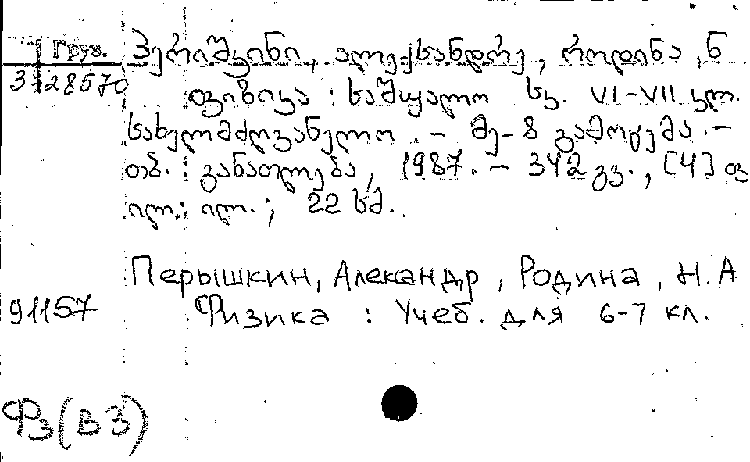 Груз.
3-28570
პერიშკინი, ალექსანდრე, როდინა, ნ
ფიზიკა : საშუალო სკ. VI-VII კლ.
სახელმძღვანელო. - მე-8 გამოცემა. -
თბ. : განათლება, 1987. - 342 გვ., [4] ფ
ილ. : ილ. ; 22 სმ.
Перышкин, Александр, Родина, Н.А
91157
Физика : Учеб. для 6-7 кл.
Ф3(В3)